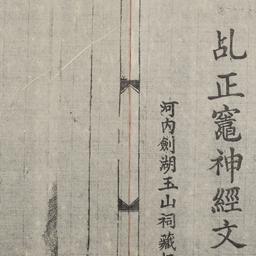 乩正竈神經文
河内劍湖玉山祠藏板